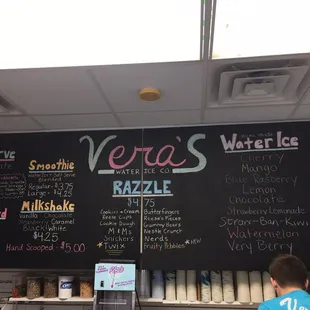 Vera's
WATER ICE CO.
RAZZLE
$4.75
Cookies n Cream
Reese Cups
Cookie Dough
M&Ms
Snickers
Twix
Butterfingers
Reese's Pieces
Gummy Bears
Nestle Crunch
Nerds
Fruity Pebbles
NEW
Smoothie
Regular $3.75
Large $4.25
Milkshake
Vanilla Chocolate
Strawberry Caramel
Black & White
$4.25
Hand Scooped $5.00
Water Ice
Cherry
Mango
Blue Raspberry
Lemon
Chocolate
Strawberry Lemonade
Straw-Ban-Kiwi
Watermelon
Very Berry